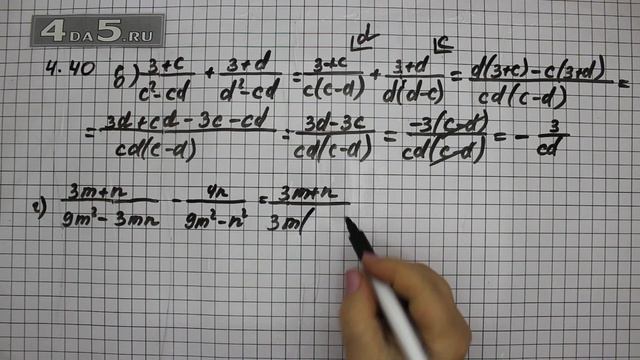 4DA5.RU
4.40 б) (3+c)/(c²-cd) + (3+d)/(d²-cd) = (3+c)/(c(c-d)) ⌊d + (3+d)/(d(d-c)) ⌊c = (d(3+c)-c(3+d))/(cd(c-d)) =
= (3d+cd-3c-cd)/(cd(c-d)) = (3d-3c)/(cd(c-d)) = (-3(c-d))/(cd(c-d)) = - 3/(cd)
г) (3m+n)/(9m²-3mn) - 4n/(9m²-n²) = (3m+n)/(3m(